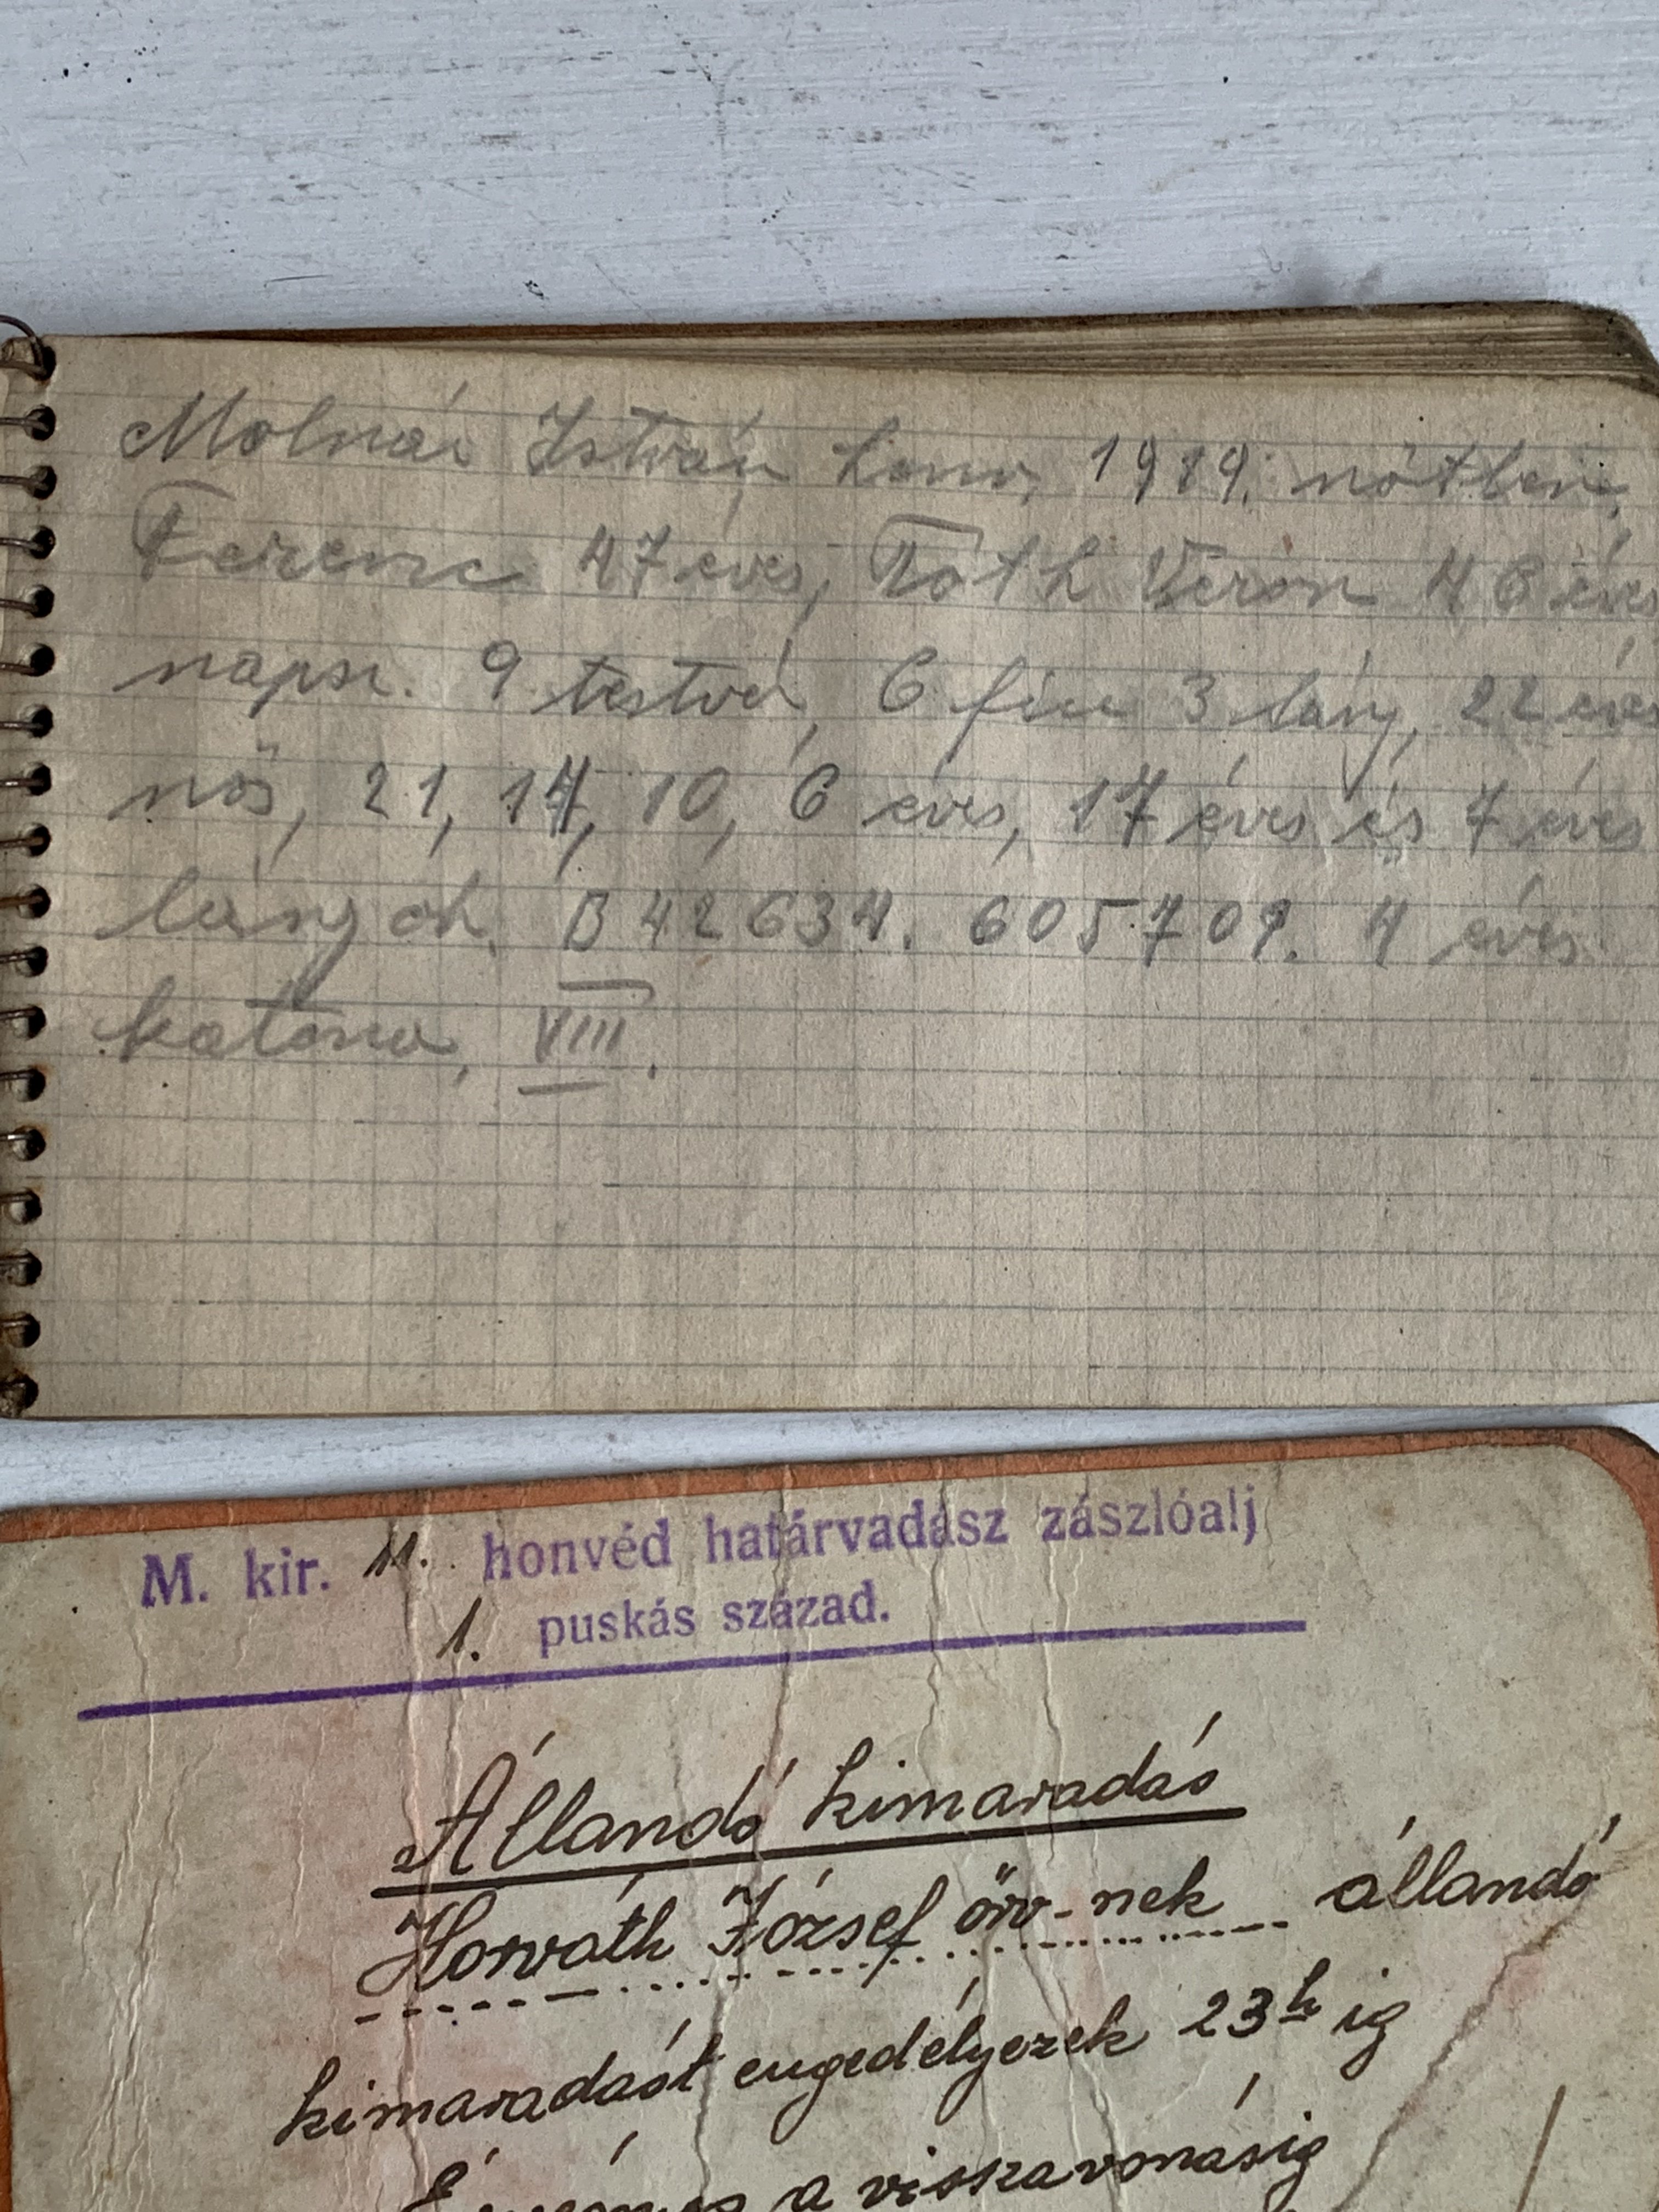 Molnár István honv. 1919. nőtlen,
Ferenc 47 éves, Tóth Veron 46 éves
napsz. 9 testvér, 6 fiu 3 lány, 22 éves
nős, 21, 14, 10, 6 éves, 17 éves és 7 éves
lányok. B 42634. 605709. 4 éves
katona, VIII.
M. kir. 11. honvéd határvadász zászlóalj
1. puskás század.
Állandó kimaradás
Horváth József őrv-nek állandó
kimaradást engedélyezek 23h ig
Érvényes a visszavonásig